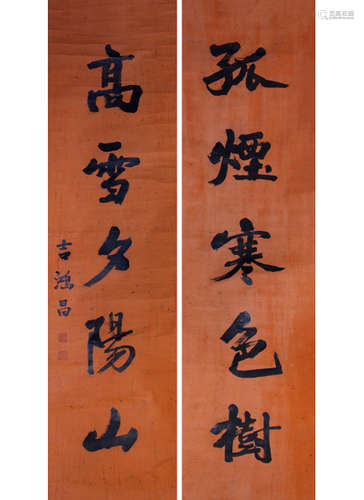 孤煙寒色樹
高雪夕陽山
吉鴻昌